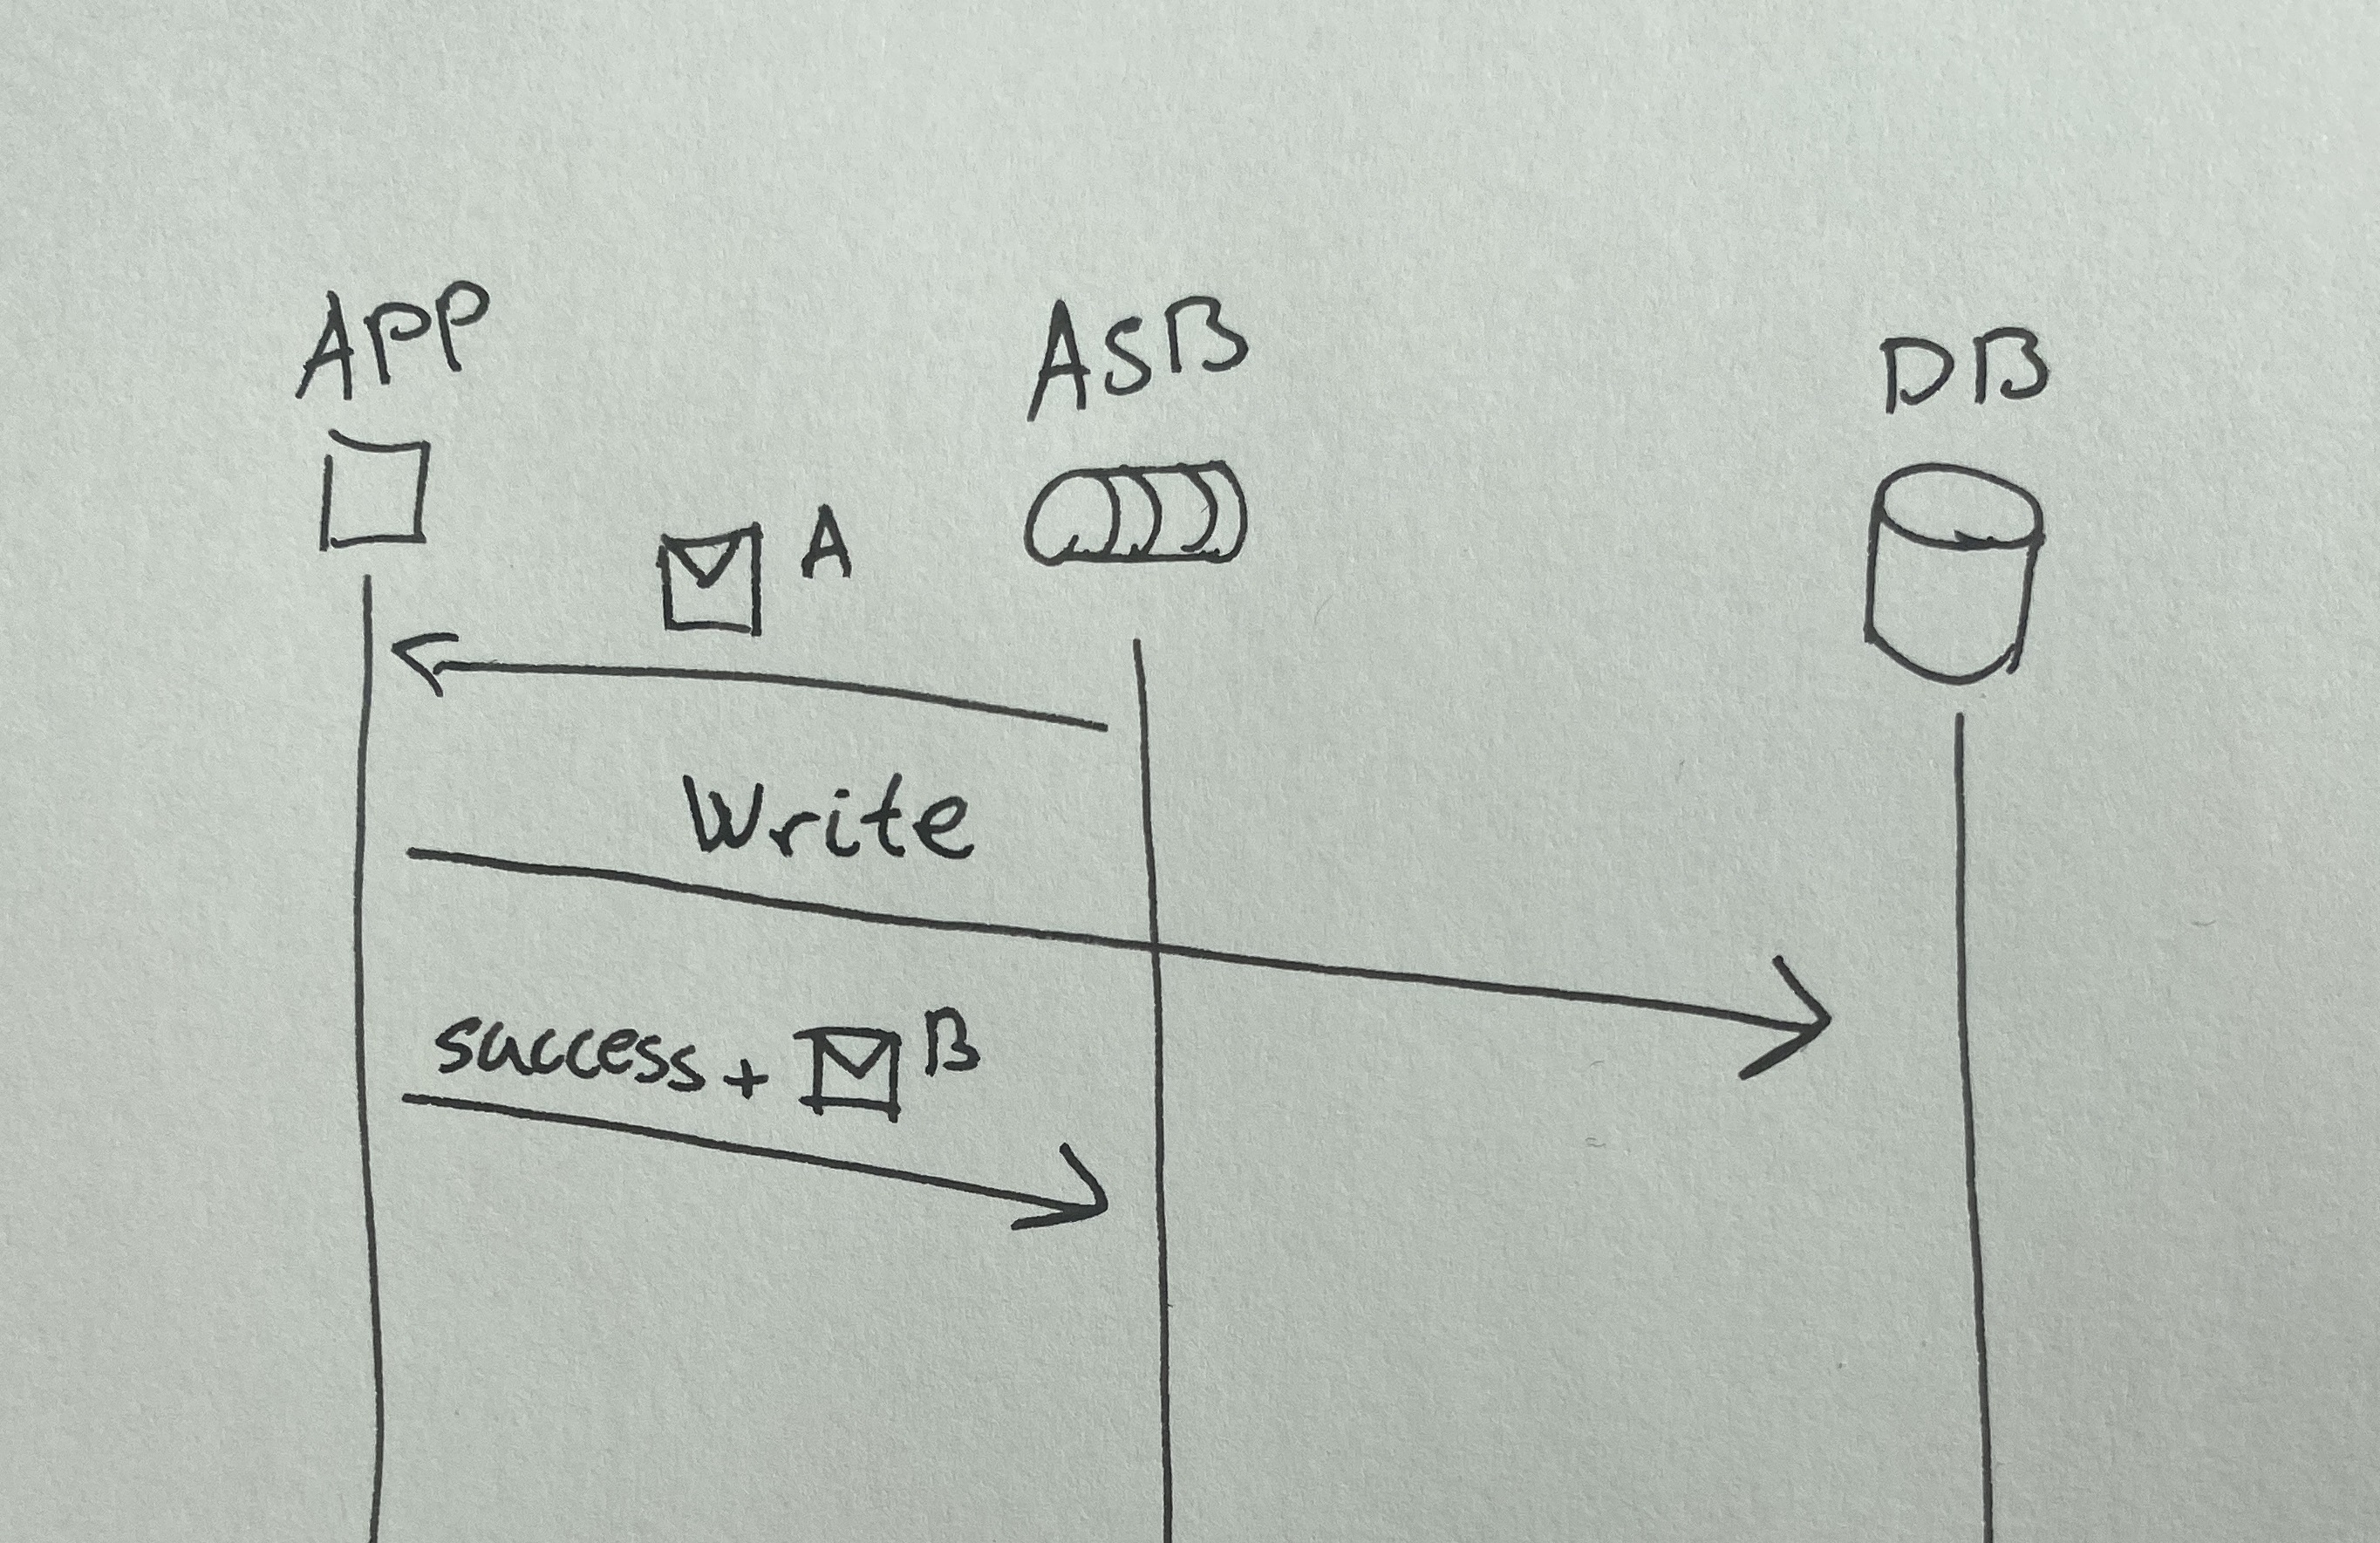 APP ASB DB
A
Write
success + B